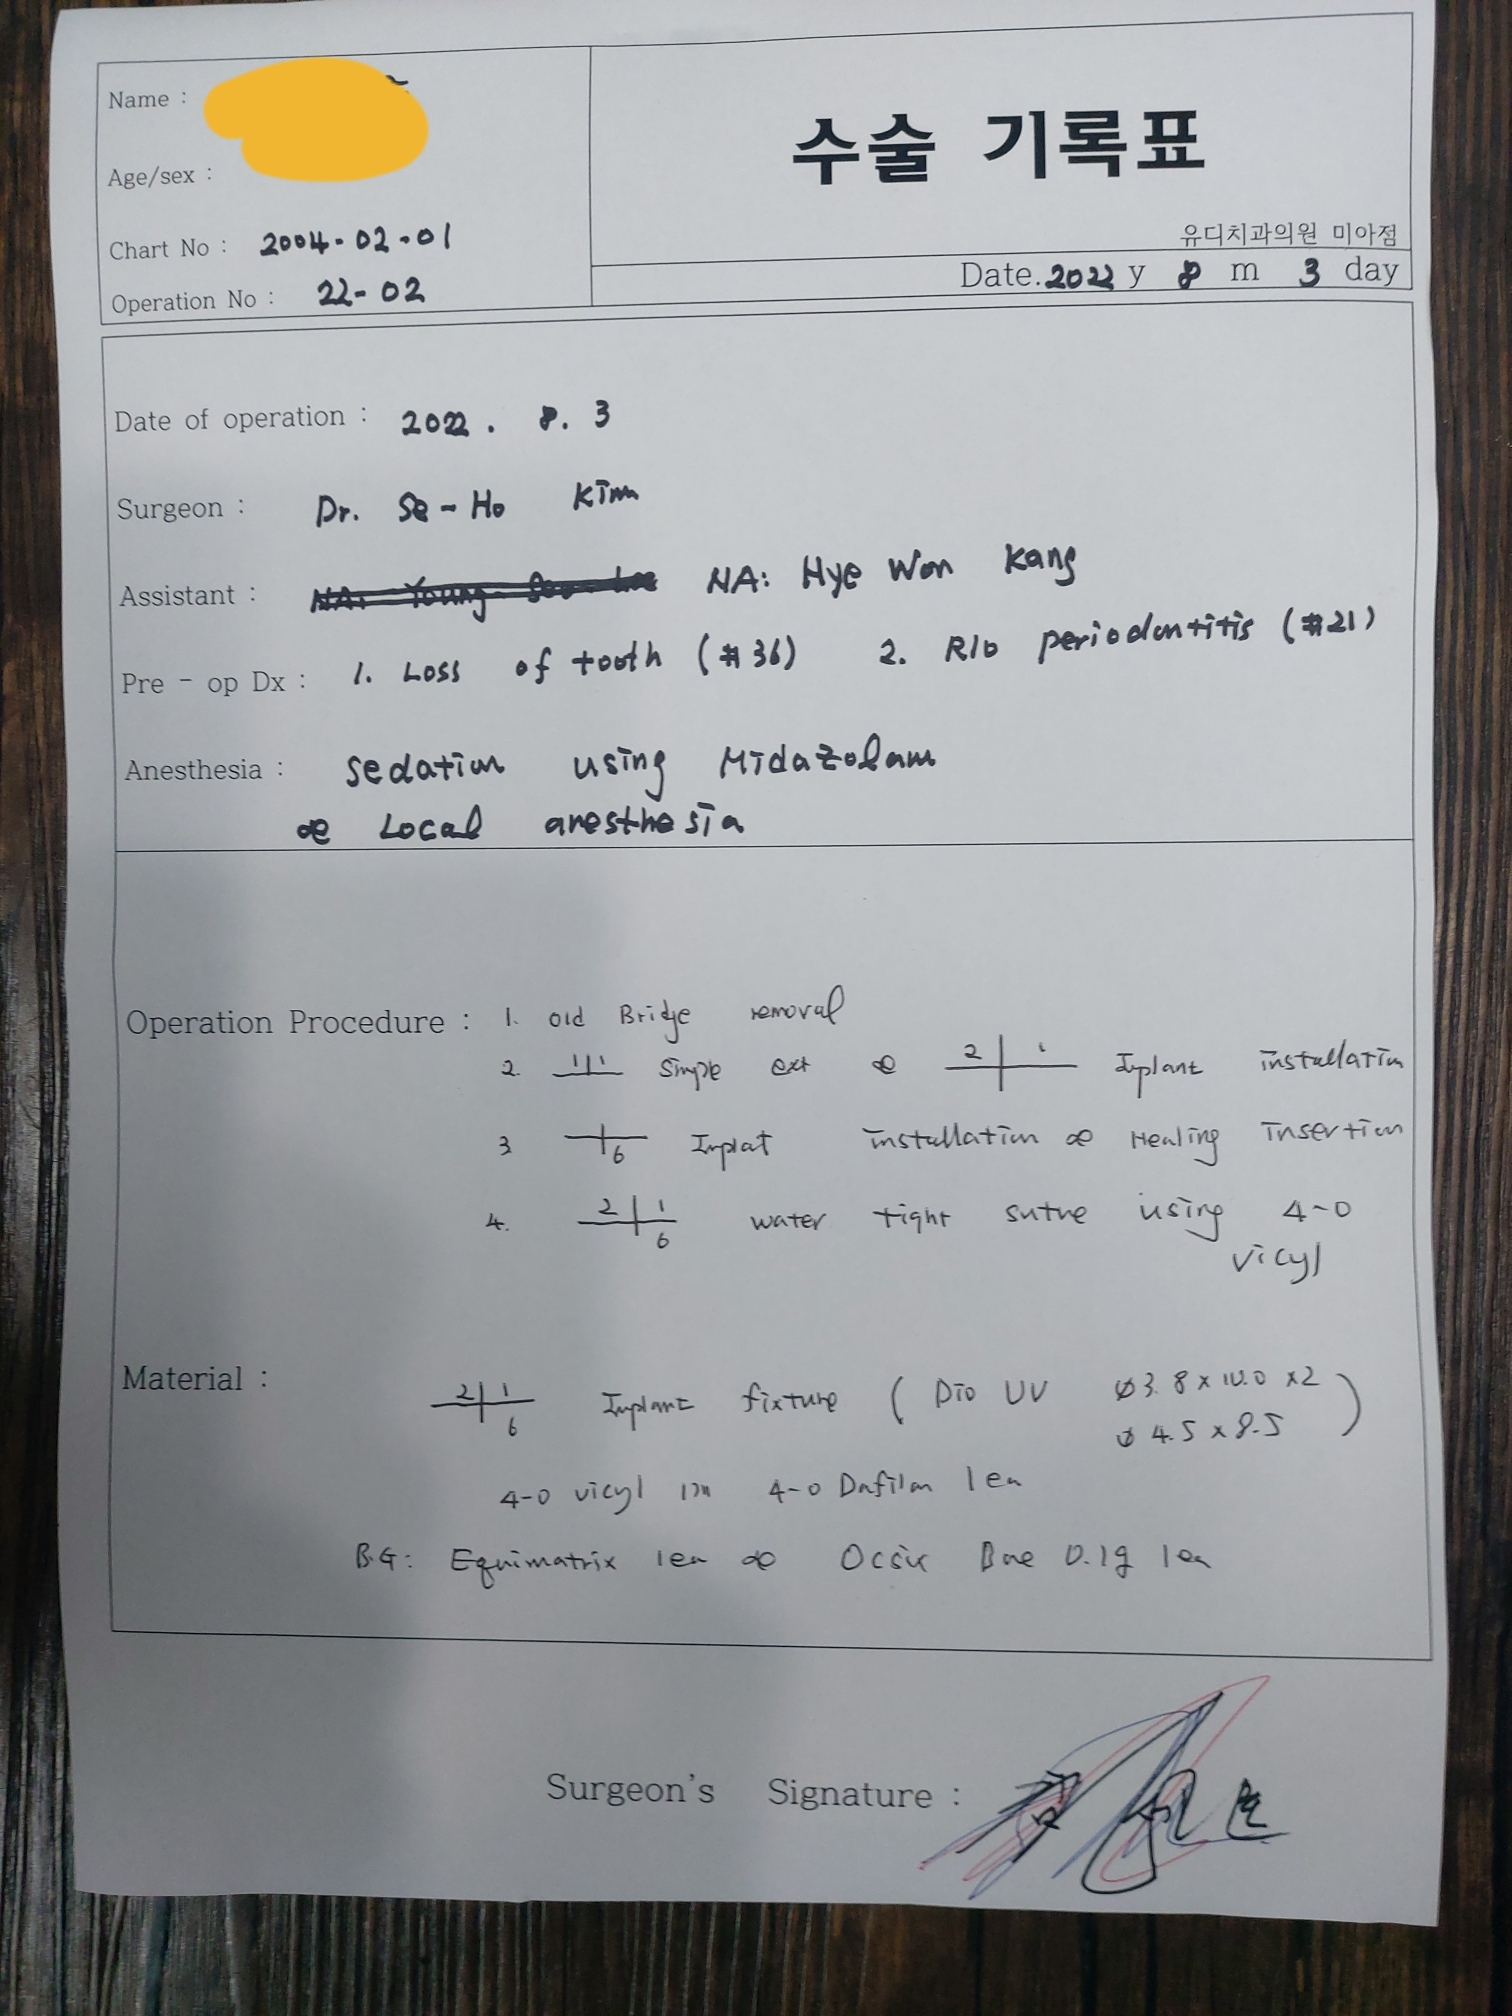 Name :
수술 기록표
Age/sex :
유디치과의원 미아점
Chart No : 2004-02-01
Date. 2022 y 8 m 3 day
Operation No : 22-02
Date of operation : 2022. 8. 3
Surgeon : Dr. Se-Ho Kim
Assistant : NA: Hye Won Kang
Pre - op Dx : 1. Loss of tooth (#36) 2. R/o periodontitis (#21)
Anesthesia : Sedation using Midazolam
Local anesthesia
Operation Procedure : 1. old Bridge removal
2. Simple ext 2 1 Implant installation
3 6 Implat installation Healing Insertion
4. 2 1 water tight sutue using 4-0
6
vicyl
Material :
2 1 Implant fixture ( Dio UV Ø3.8 x 10.0 x2
6 Ø 4.5 x 8.5 )
4-0 vicyl 4-0 Dafilon 1ea
B.G: Equimatrix 1ea 0.1g 1ea
Surgeon's Signature :